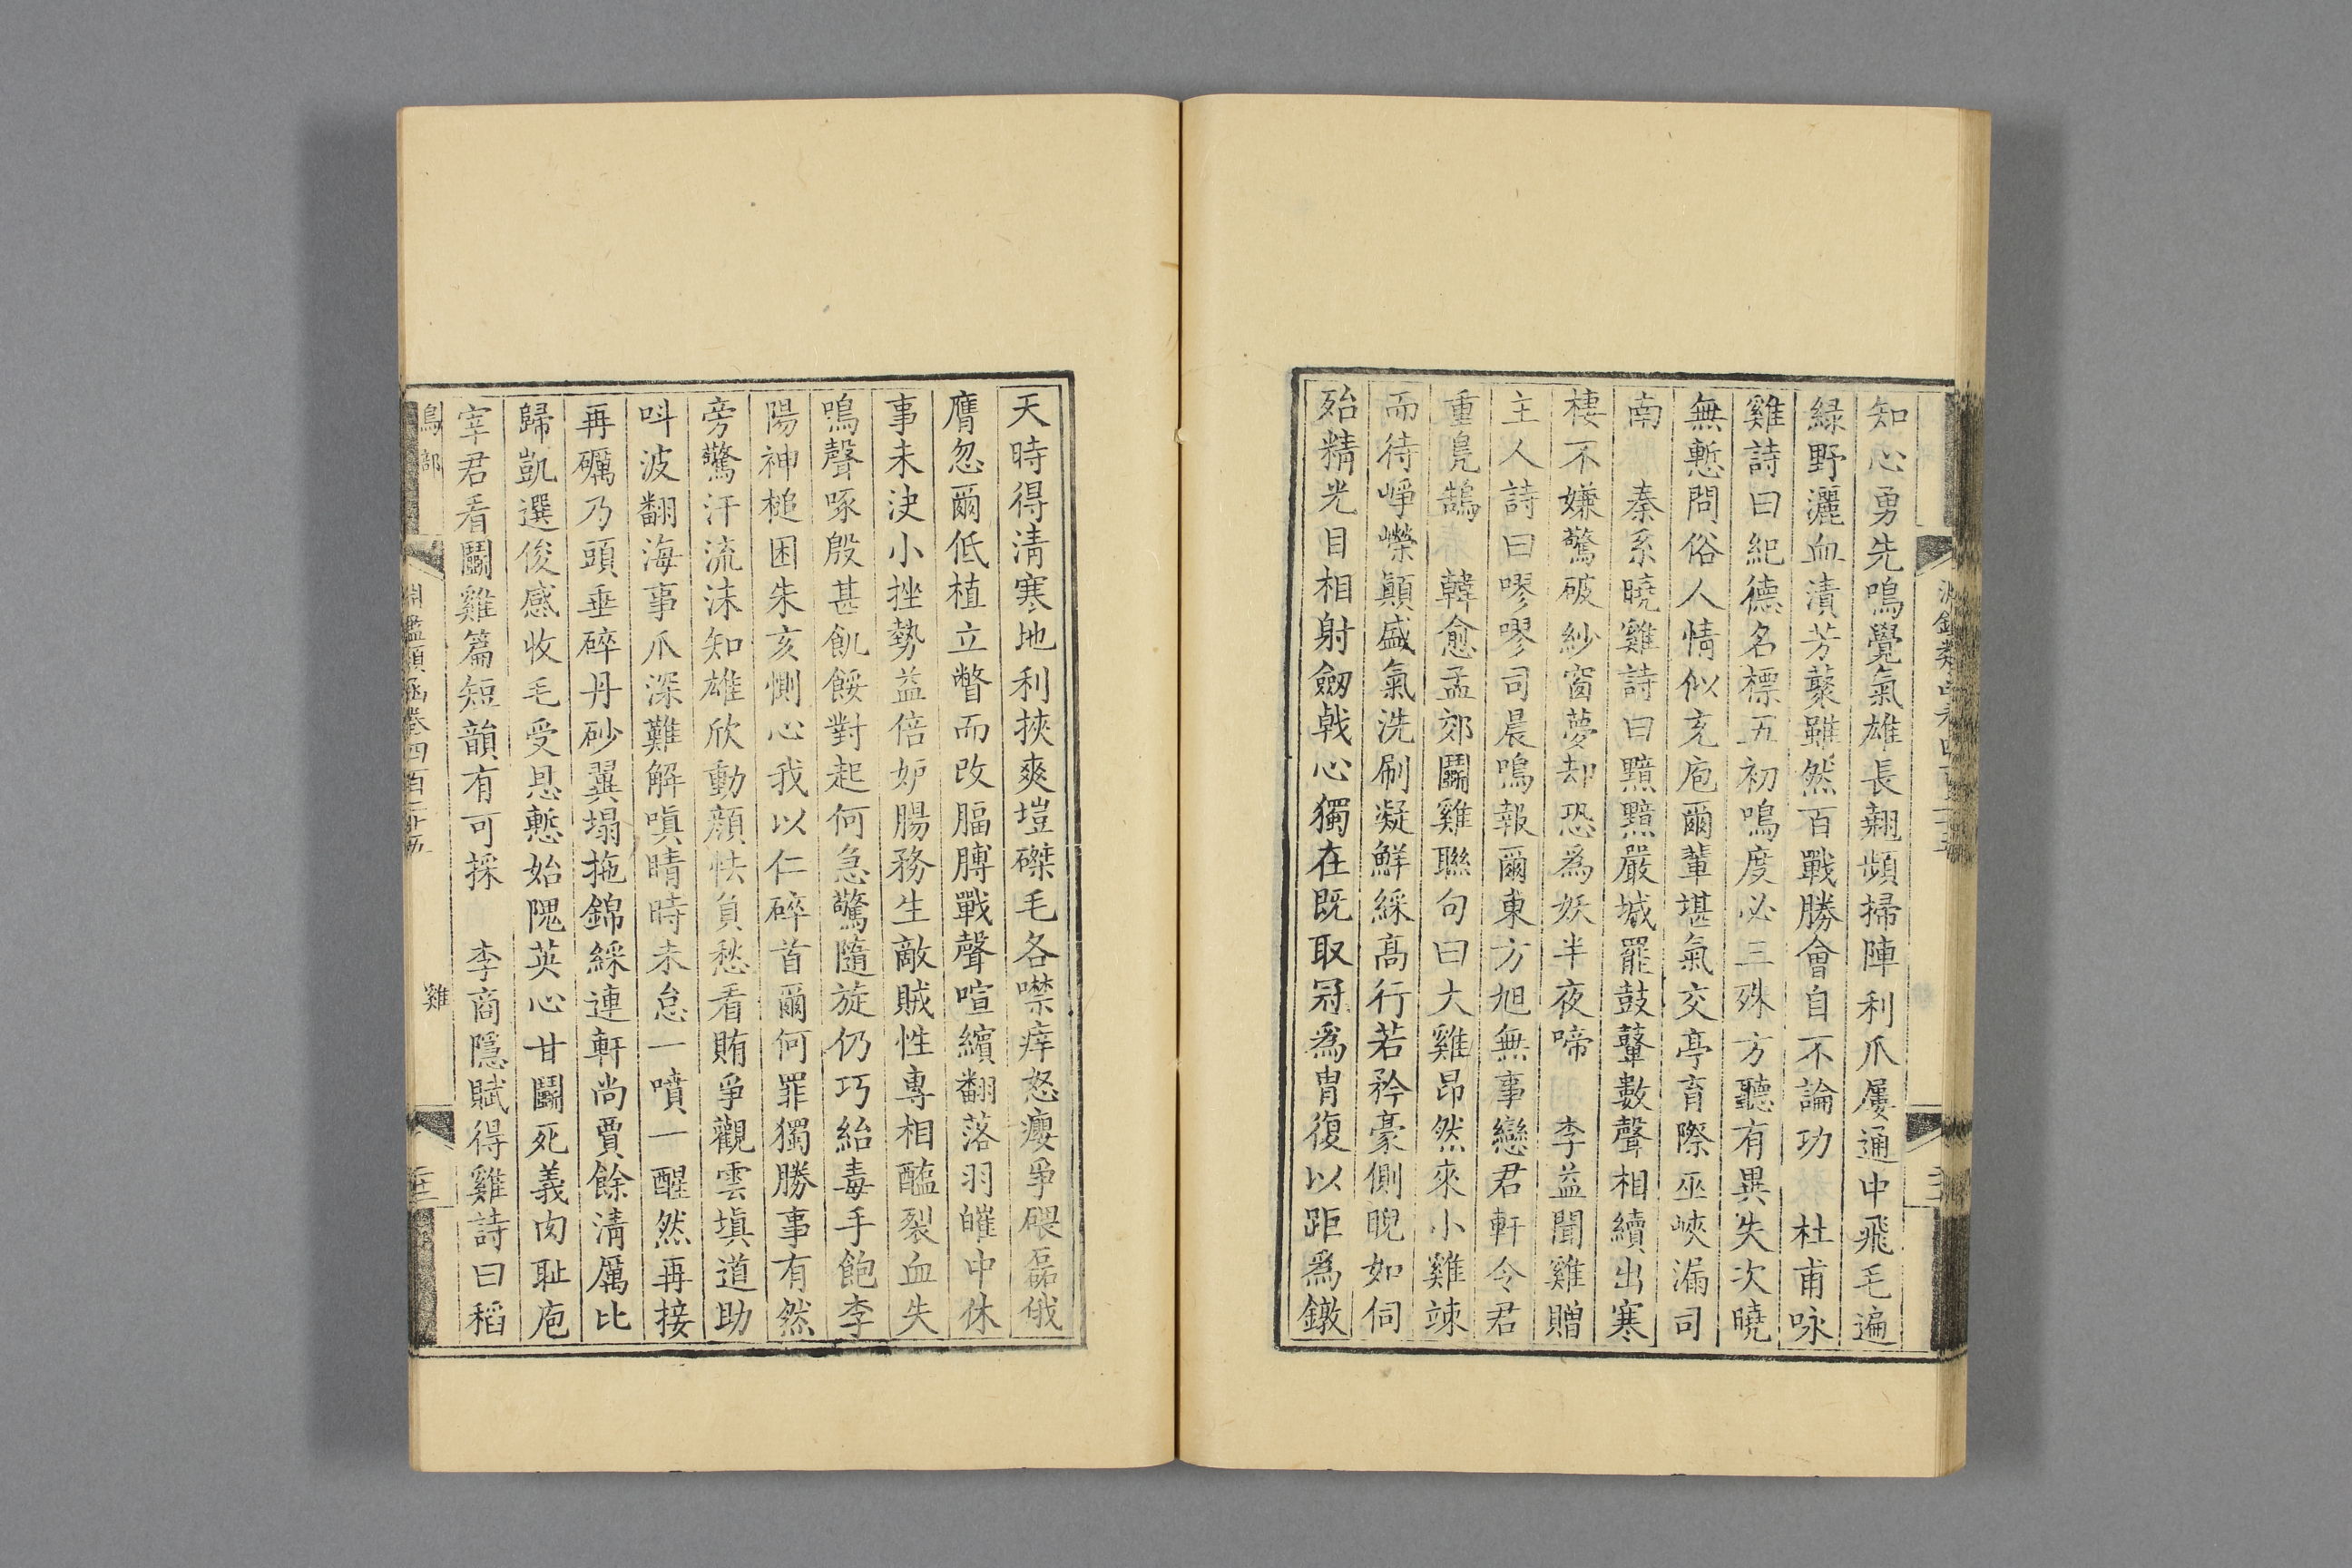 知心勇先鳴覺氣雄長翹頻掃陣利爪屢通中飛毛遍
綠野灑血漬芳藂雖然百戰勝會自不論功　杜甫咏
雞詩曰紀德名標五初鳴度必三殊方聽有異失次曉
無慙問俗人情似充庖爾輩堪氣交亭育際巫峽漏司
南　秦系曉雞詩曰黯黯嚴城罷鼓鼙數聲相續出寒
棲不嫌驚破紗窗夢却恐爲妖半夜啼　李益聞雞贈
主人詩曰嘐嘐司晨鳴報爾東方旭無事戀君軒今君
重鳧鵠　韓愈孟郊鬭雞聯句曰大雞昂然來小雞竦
而待崢嶸顛盛氣洗刷凝鮮綵高行若矜豪側睨如伺
殆精光目相射劒戟心獨在既取冠爲胄復以距爲鐓
天時得清寒地利挾爽塏磔毛各噤痒怒癭爭碨磊俄
膺忽爾低植立瞥而改腷膊戰聲喧繽翻落羽皠中休
事未决小挫勢益倍妒腸務生敵賊性專相醢裂血失
鳴聲啄殷甚飢餒對起何急驚隨旋仍巧紿毒手飽李
陽神槌困朱亥惻心我以仁碎首爾何罪獨勝事有然
旁驚汗流浹知雄欣動顔怯負愁看賄爭觀雲塡道助
呌波翻海事爪深難解嗔睛時未怠一噴一醒然再接
再礪乃頭垂碎丹砂翼塌拖錦綵連軒尚賈餘清厲比
歸凱選俊感收毛受恩慙始隗英心甘鬭死義肉耻庖
宰君看鬭雞篇短韻有可採　李商隱賦得雞詩曰稻
鳥部　淵鑑類函卷四百二十五　雞